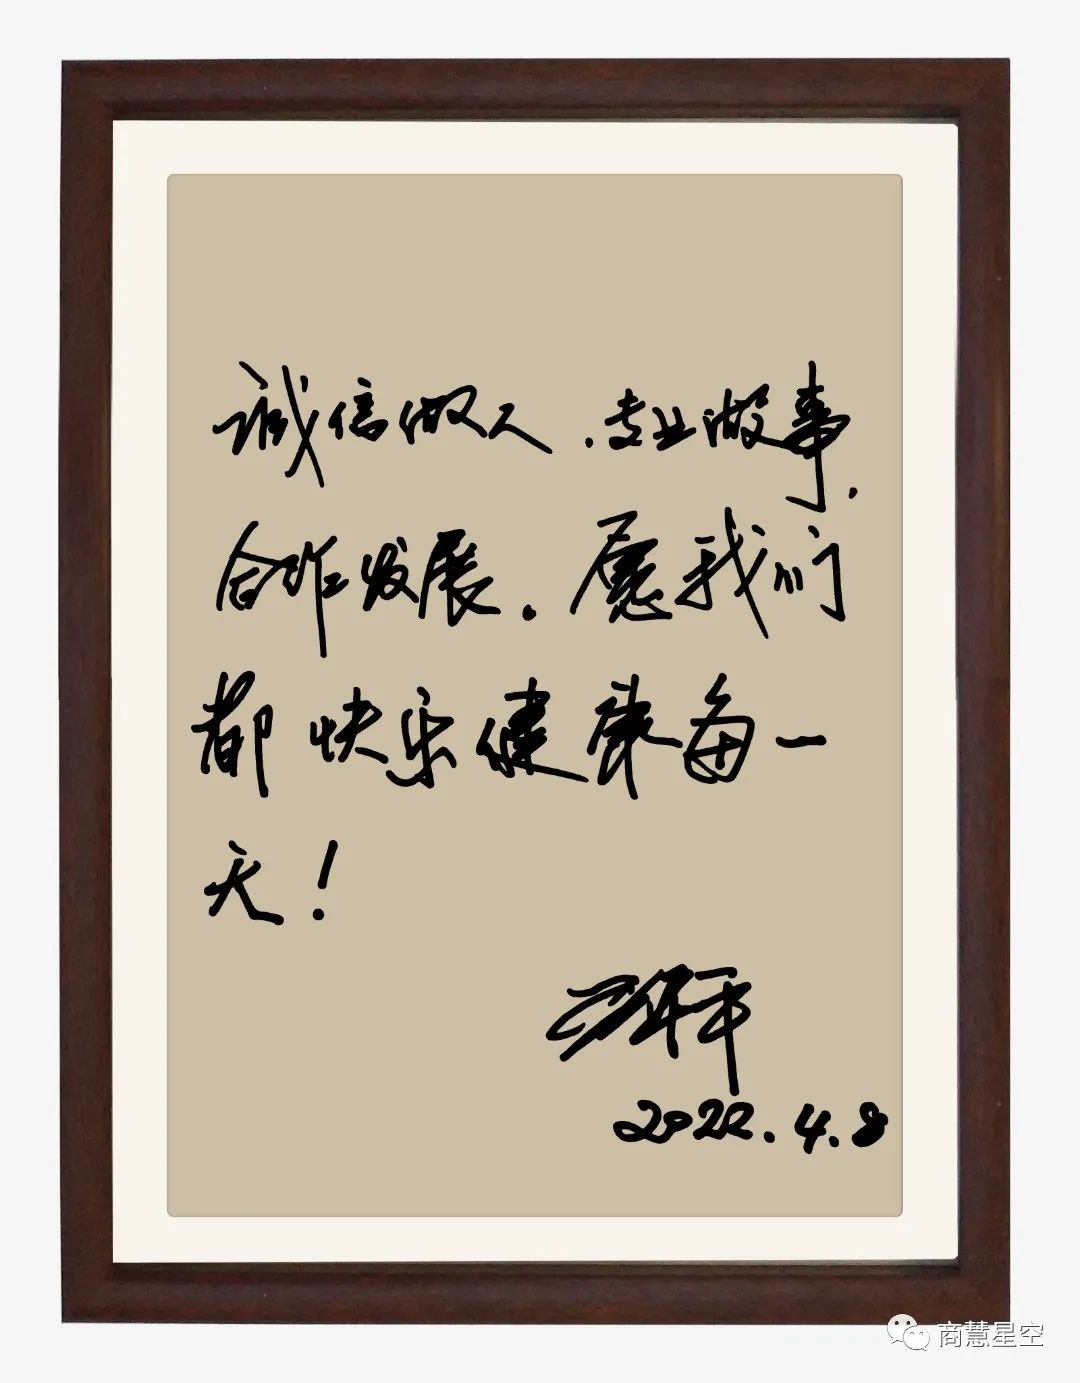 诚信做人、专业做事.
合作发展. 愿我们
都快乐健康每一
天!
2022.4.8
商慧星空